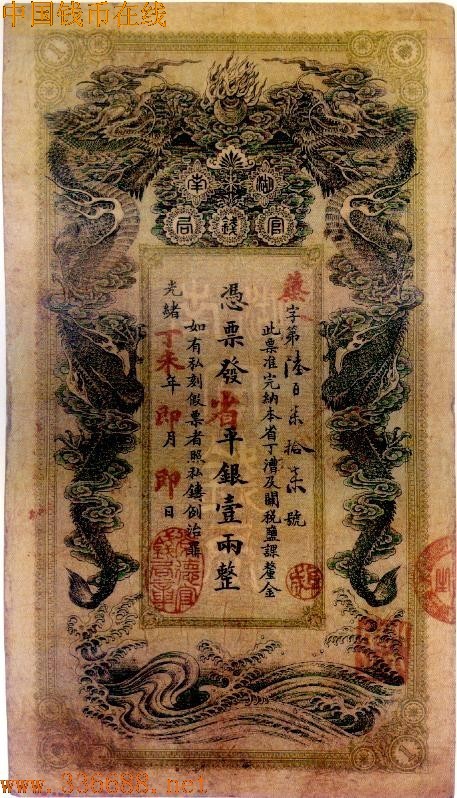 中国钱币在线
湖南
官錢局
字第陸百柒拾柒號
此票准完納本省丁漕及關税鹽課釐金
憑票發省平銀壹兩整
如有私刻假票者照私鑄例治罪
光緒丁未年即月即日